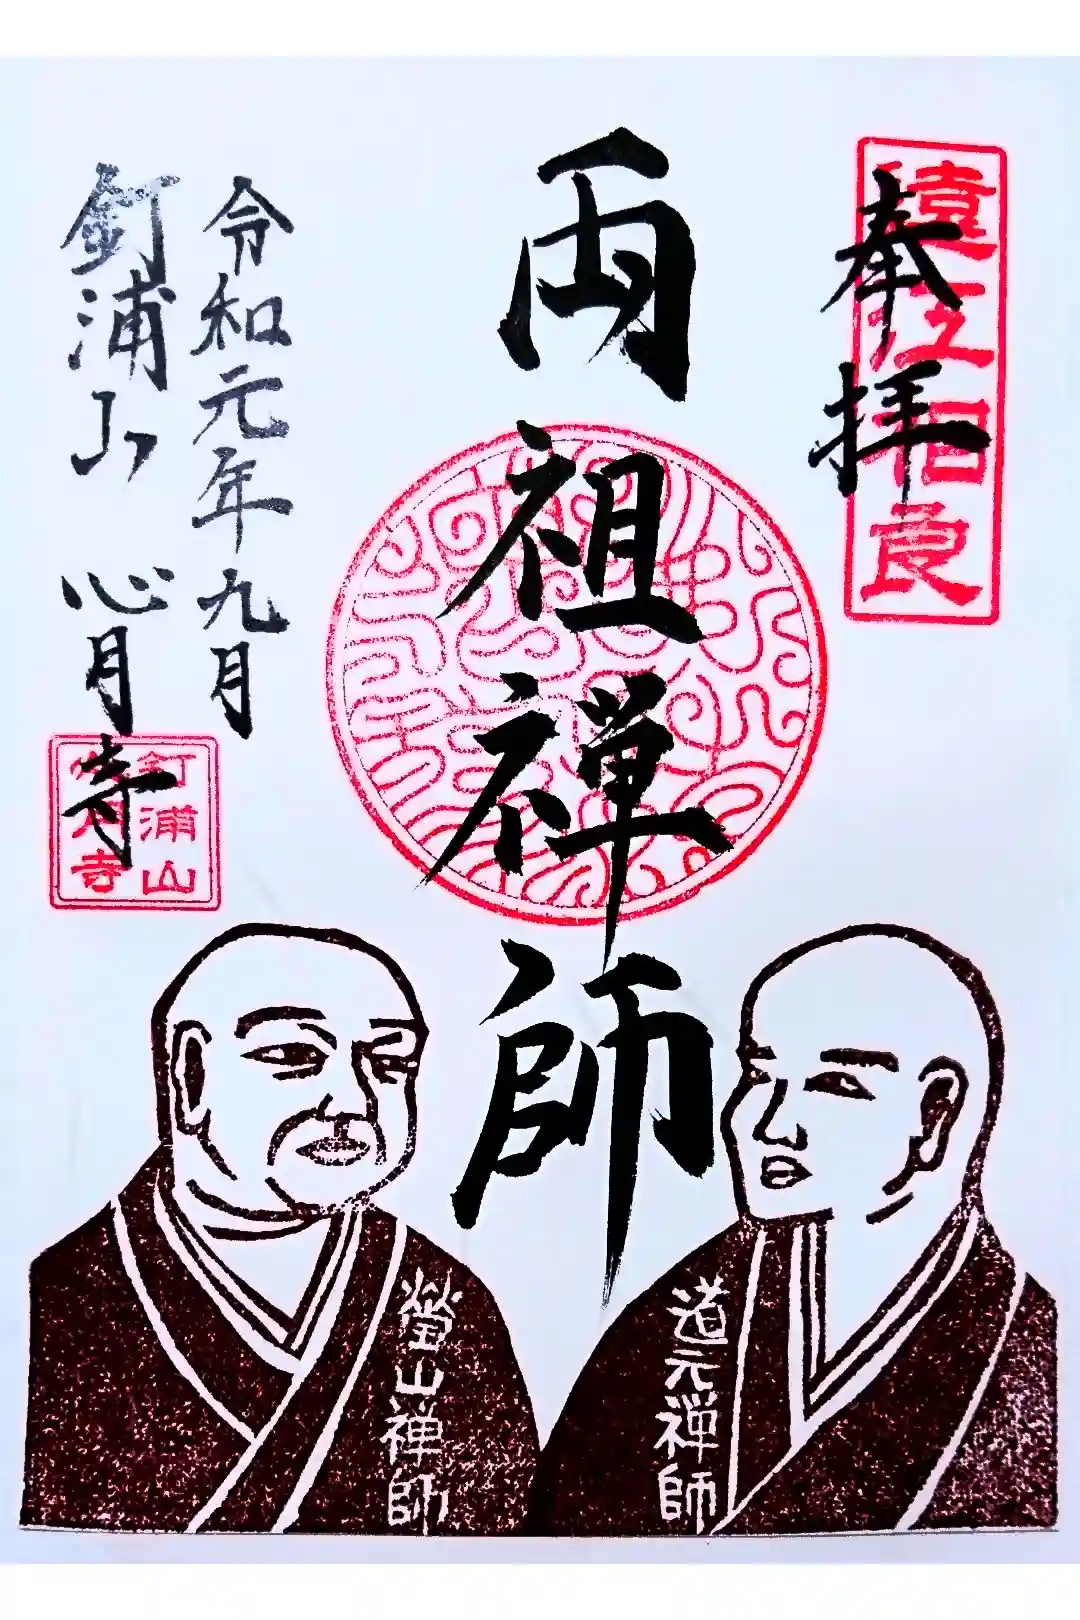 奉拝
遠江相良
両祖禅師
令和元年九月
釘浦山 心月寺
釘浦山
心月寺
道元禅師
瑩山禅師